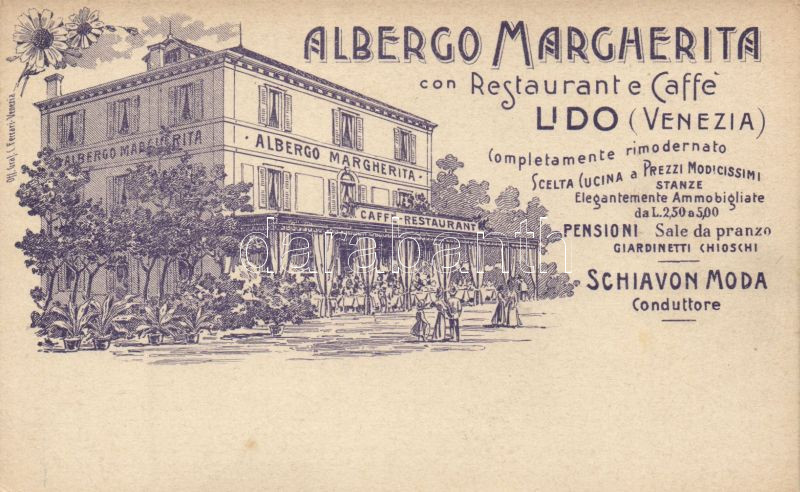 ALBERGO MARGHERITA
con Restaurant e Caffè
LIDO (VENEZIA)
Completamente rimodernato
SCELTA CUCINA a PREZZI MODICISSIMI
STANZE
Elegantemente Ammobigliate
da L. 2,50 a 5,00
PENSIONI Sale da pranzo
GIARDINETTI CHIOSCHI
SCHIAVON MODA
Conduttore
ALBERGO MARGHERITA
ALBERGO MARGHERITA
CAFFÈ-RESTAURANT
Ferrari-Venezia
darabanth